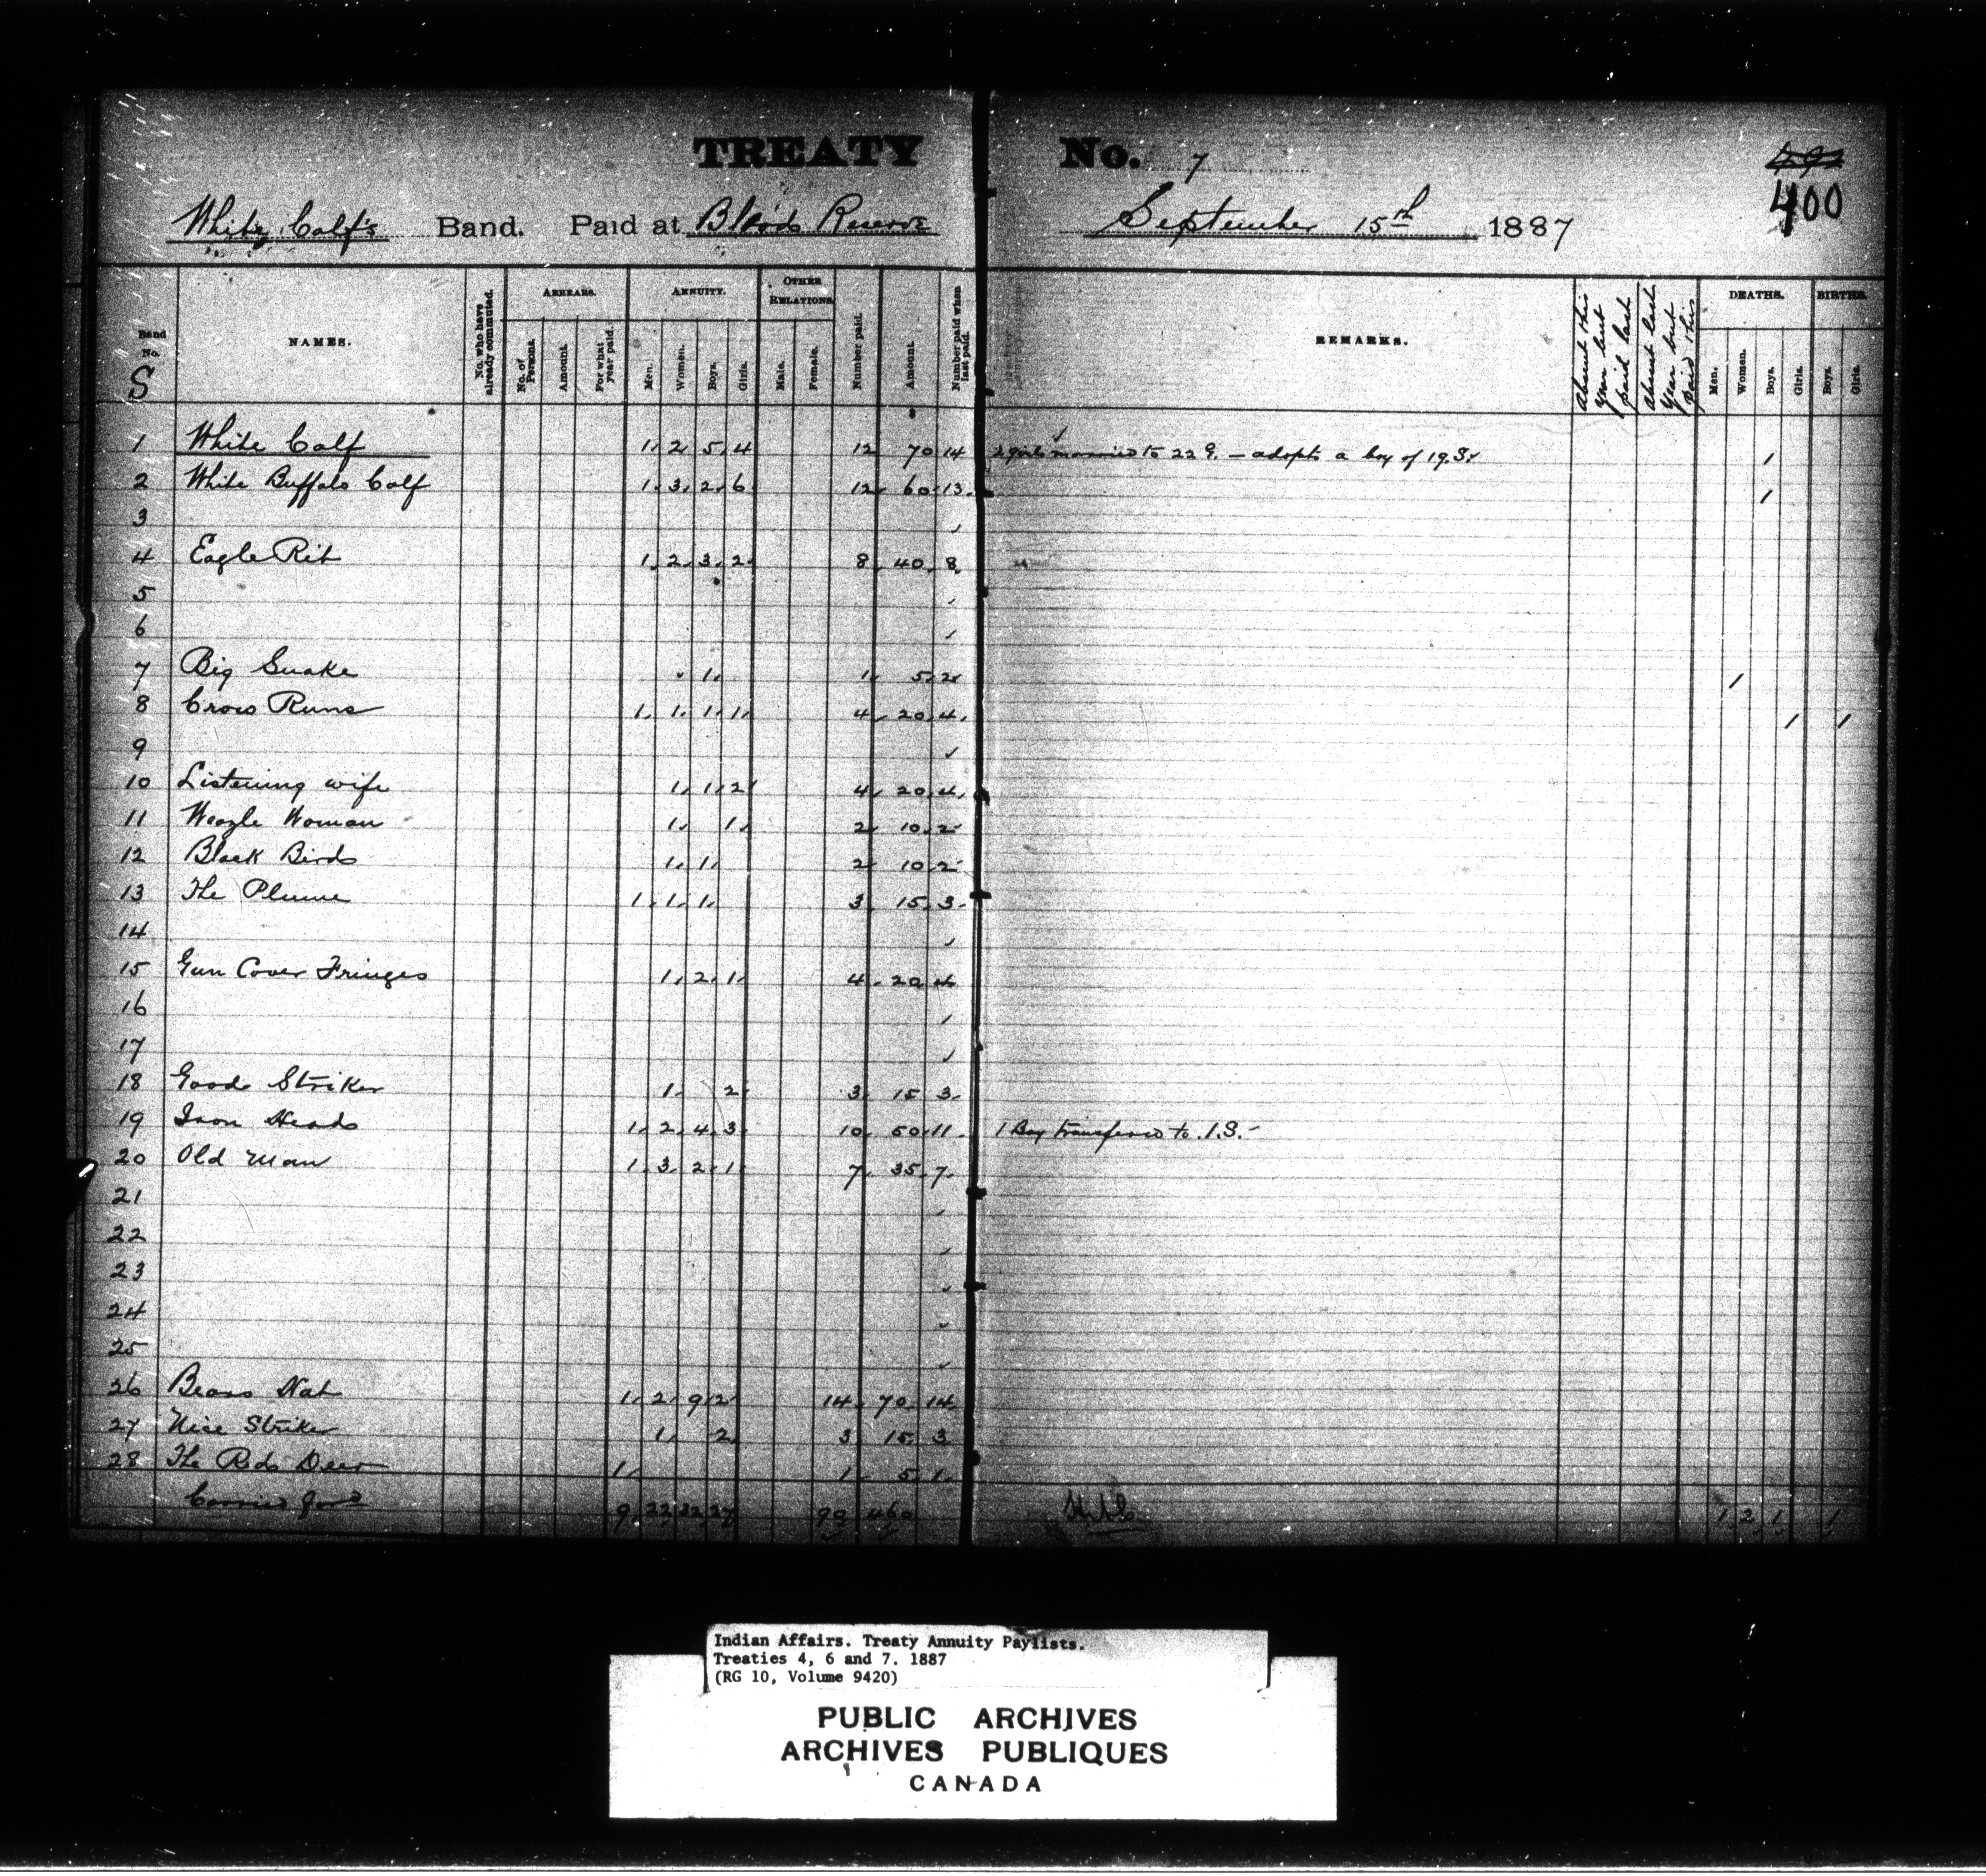 TREATY No. 7
400
White Calf's Band. Paid at Blood Reserve September 15th 1887
Band No. NAMES. No. who have already commuted. ARREARS. No. of Persons. Amount. For what year paid. ANNUITY. Men. Women. Boys. Girls. OTHER RELATIONS Male. Female. Number paid. Amount. Number paid when last paid. REMARKS. Absent this year but paid last Absent last year but paid this DEATHS. Men. Women. Boys. Girls. BIRTHS. Boys. Girls.
S
1 White Calf 1 2 5 4 12 70 14 2 girls married to 22 G. — adopts a boy of 19.S. 1
2 White Buffalo Calf 1 3 2 6 12 60 13 1
3
4 Eagle Rib 1 2 3 2 8 40 8
5
6
7 Big Snake 1 1 5 2 1
8 Crow Runs 1 1 1 1 4 20 4 1 1
9
10 Listening wife 1 1 2 4 20 4
11 Weazle Woman 1 1 2 10 2
12 Black Birds 1 1 2 10 2
13 The Plume 1 1 1 3 15 3
14
15 Gun Cover Fringes 1 2 1 4 20 4
16
17
18 Good Striker 1 2 3 15 3
19 Iron Heads 1 2 4 3 10 50 11 1 Boy transferred to .1.S.-
20 Old Man 1 3 2 1 7 35 7
21
22
23
24
25
26 Bears Hat 1 2 9 2 14 70 14
27 Nice Striker 1 2 3 15 3
28 The Red Deer 1 1 5 1
Carried ford 9 22 32 27 90 460 1 2 1 1
Indian Affairs. Treaty Annuity Paylists.
Treaties 4, 6 and 7. 1887
(RG 10, Volume 9420)
PUBLIC ARCHIVES
ARCHIVES PUBLIQUES
CANADA